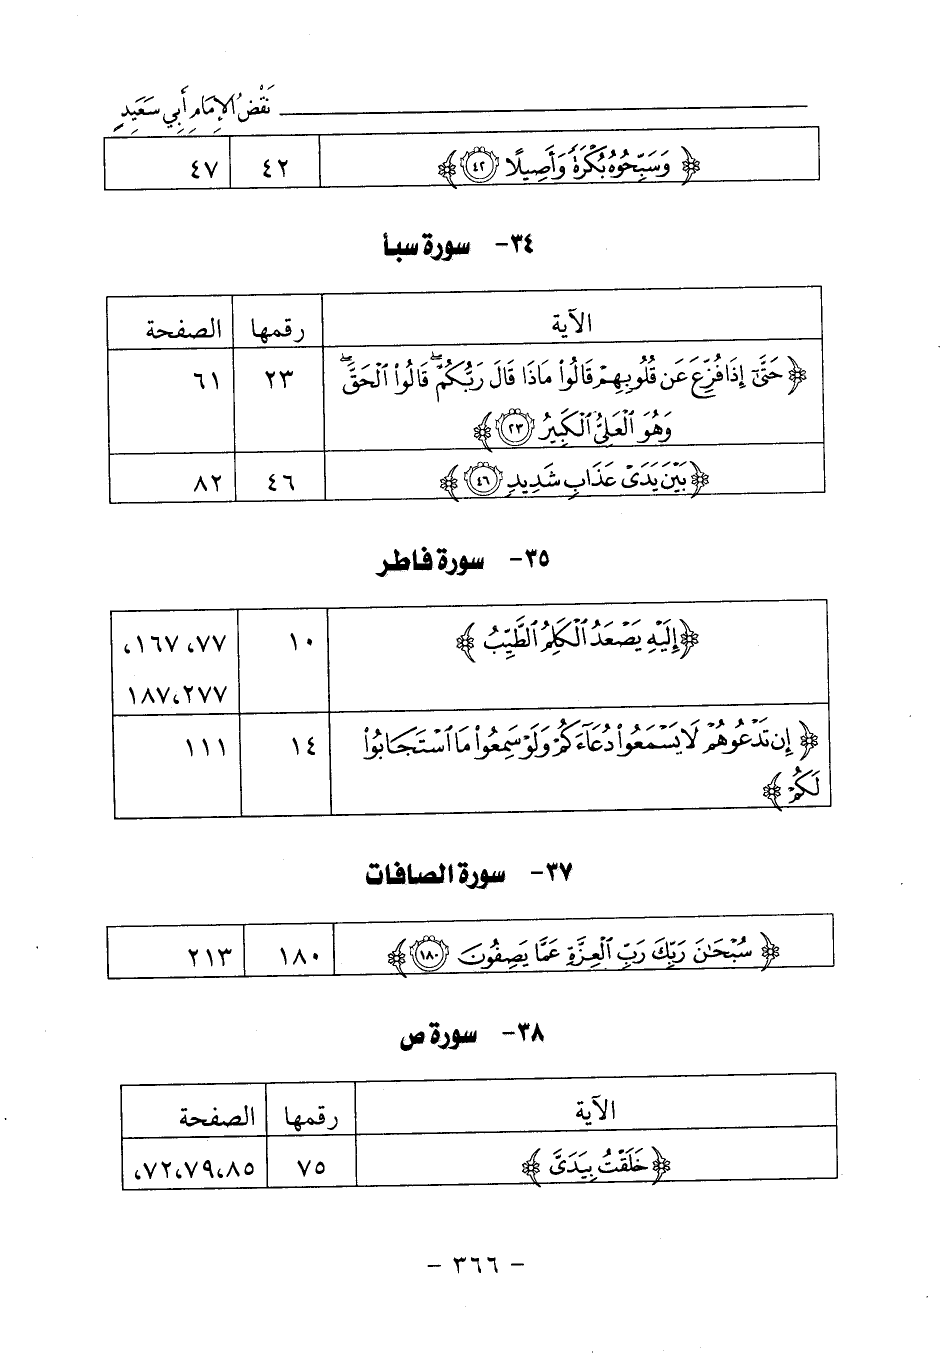 نَقْضُ الإِمَامِ أَبِي سَعِيدٍ
﴿ وَسَبِّحُوهُ بُكْرَةً وَأَصِيلًا ٤٢ ﴾ ٤٢ ٤٧
٣٤- سورة سبأ
الآية رقمها الصفحة
﴿ حَتَّىٰٓ إِذَا فُزِّعَ عَن قُلُوبِهِمْ قَالُوا۟ مَاذَا قَالَ رَبُّكُمْ ۖ قَالُوا۟ ٱلْحَقَّ ۖ ٢٣ ٦١
وَهُوَ ٱلْعَلِىُّ ٱلْكَبِيرُ ٢٣ ﴾
﴿ بَيْنَ يَدَىْ عَذَابٍ شَدِيدٍ ٤٦ ﴾ ٤٦ ٨٢
٣٥- سورة فاطر
﴿ إِلَيْهِ يَصْعَدُ ٱلْكَلِمُ ٱلطَّيِّبُ ﴾ ١٠ ٧٧، ١٦٧،
٢٧٧، ١٨٧
﴿ إِن تَدْعُوهُمْ لَا يَسْمَعُوا۟ دُعَآءَكُمْ وَلَوْ سَمِعُوا۟ مَا ٱسْتَجَابُوا۟ ١٤ ١١١
لَكُمْ ﴾
٣٧- سورة الصافات
﴿ سُبْحَٰنَ رَبِّكَ رَبِّ ٱلْعِزَّةِ عَمَّا يَصِفُونَ ١٨٠ ﴾ ١٨٠ ٢١٣
٣٨- سورة ص
الآية رقمها الصفحة
﴿ خَلَقْتُ بِيَدَىَّ ﴾ ٧٥ ٨٥، ٧٩، ٧٢،
- ٣٦٦ -